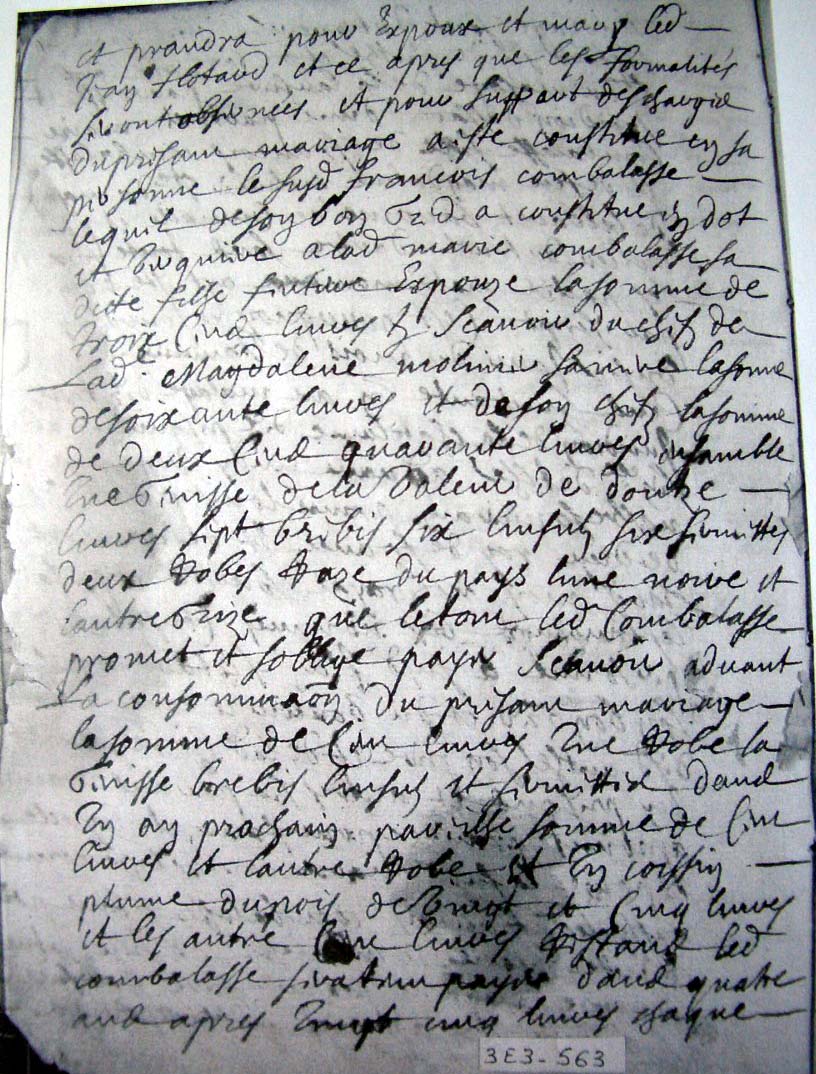 et prandra pour Expoux et mary led
Jean flotard et ce apres que les formalités
seront observées et pour suport des charges
du presant mariage a esté constitue en sa
personne le susd francois combalasse
lequel de son bon gred a constitue en dot
et verquiere a lad marie combalasse sa
dite fille future Expouze la somme de
trois Cens livres scavoir du chef de
Lad Magdalene molines sa mere la some
de soixante livres et de son chef la somme
de deux Cens quarante livres ensamble
une genisse de la valeur de doutze
livres sept brebis six linsuls six serviettes
deux Robes Raze du pays lune noire et
lautre grize que le tout led Combalasse
promet et soblige payer scavoir advant
La consommaon du presant mariage
la somme de Cent livres une Robe la
genisse brebis linsuls et serviettes dans
un an prochain pareille somme de Cent
livres et lautre Robe et un coissin
plume du pois de vingt et cinq livres
et les autre Cent livres Restans led
combalasse sera tenu payer dans quatre
ans apres vingt cinq livres chaque
3E3-563